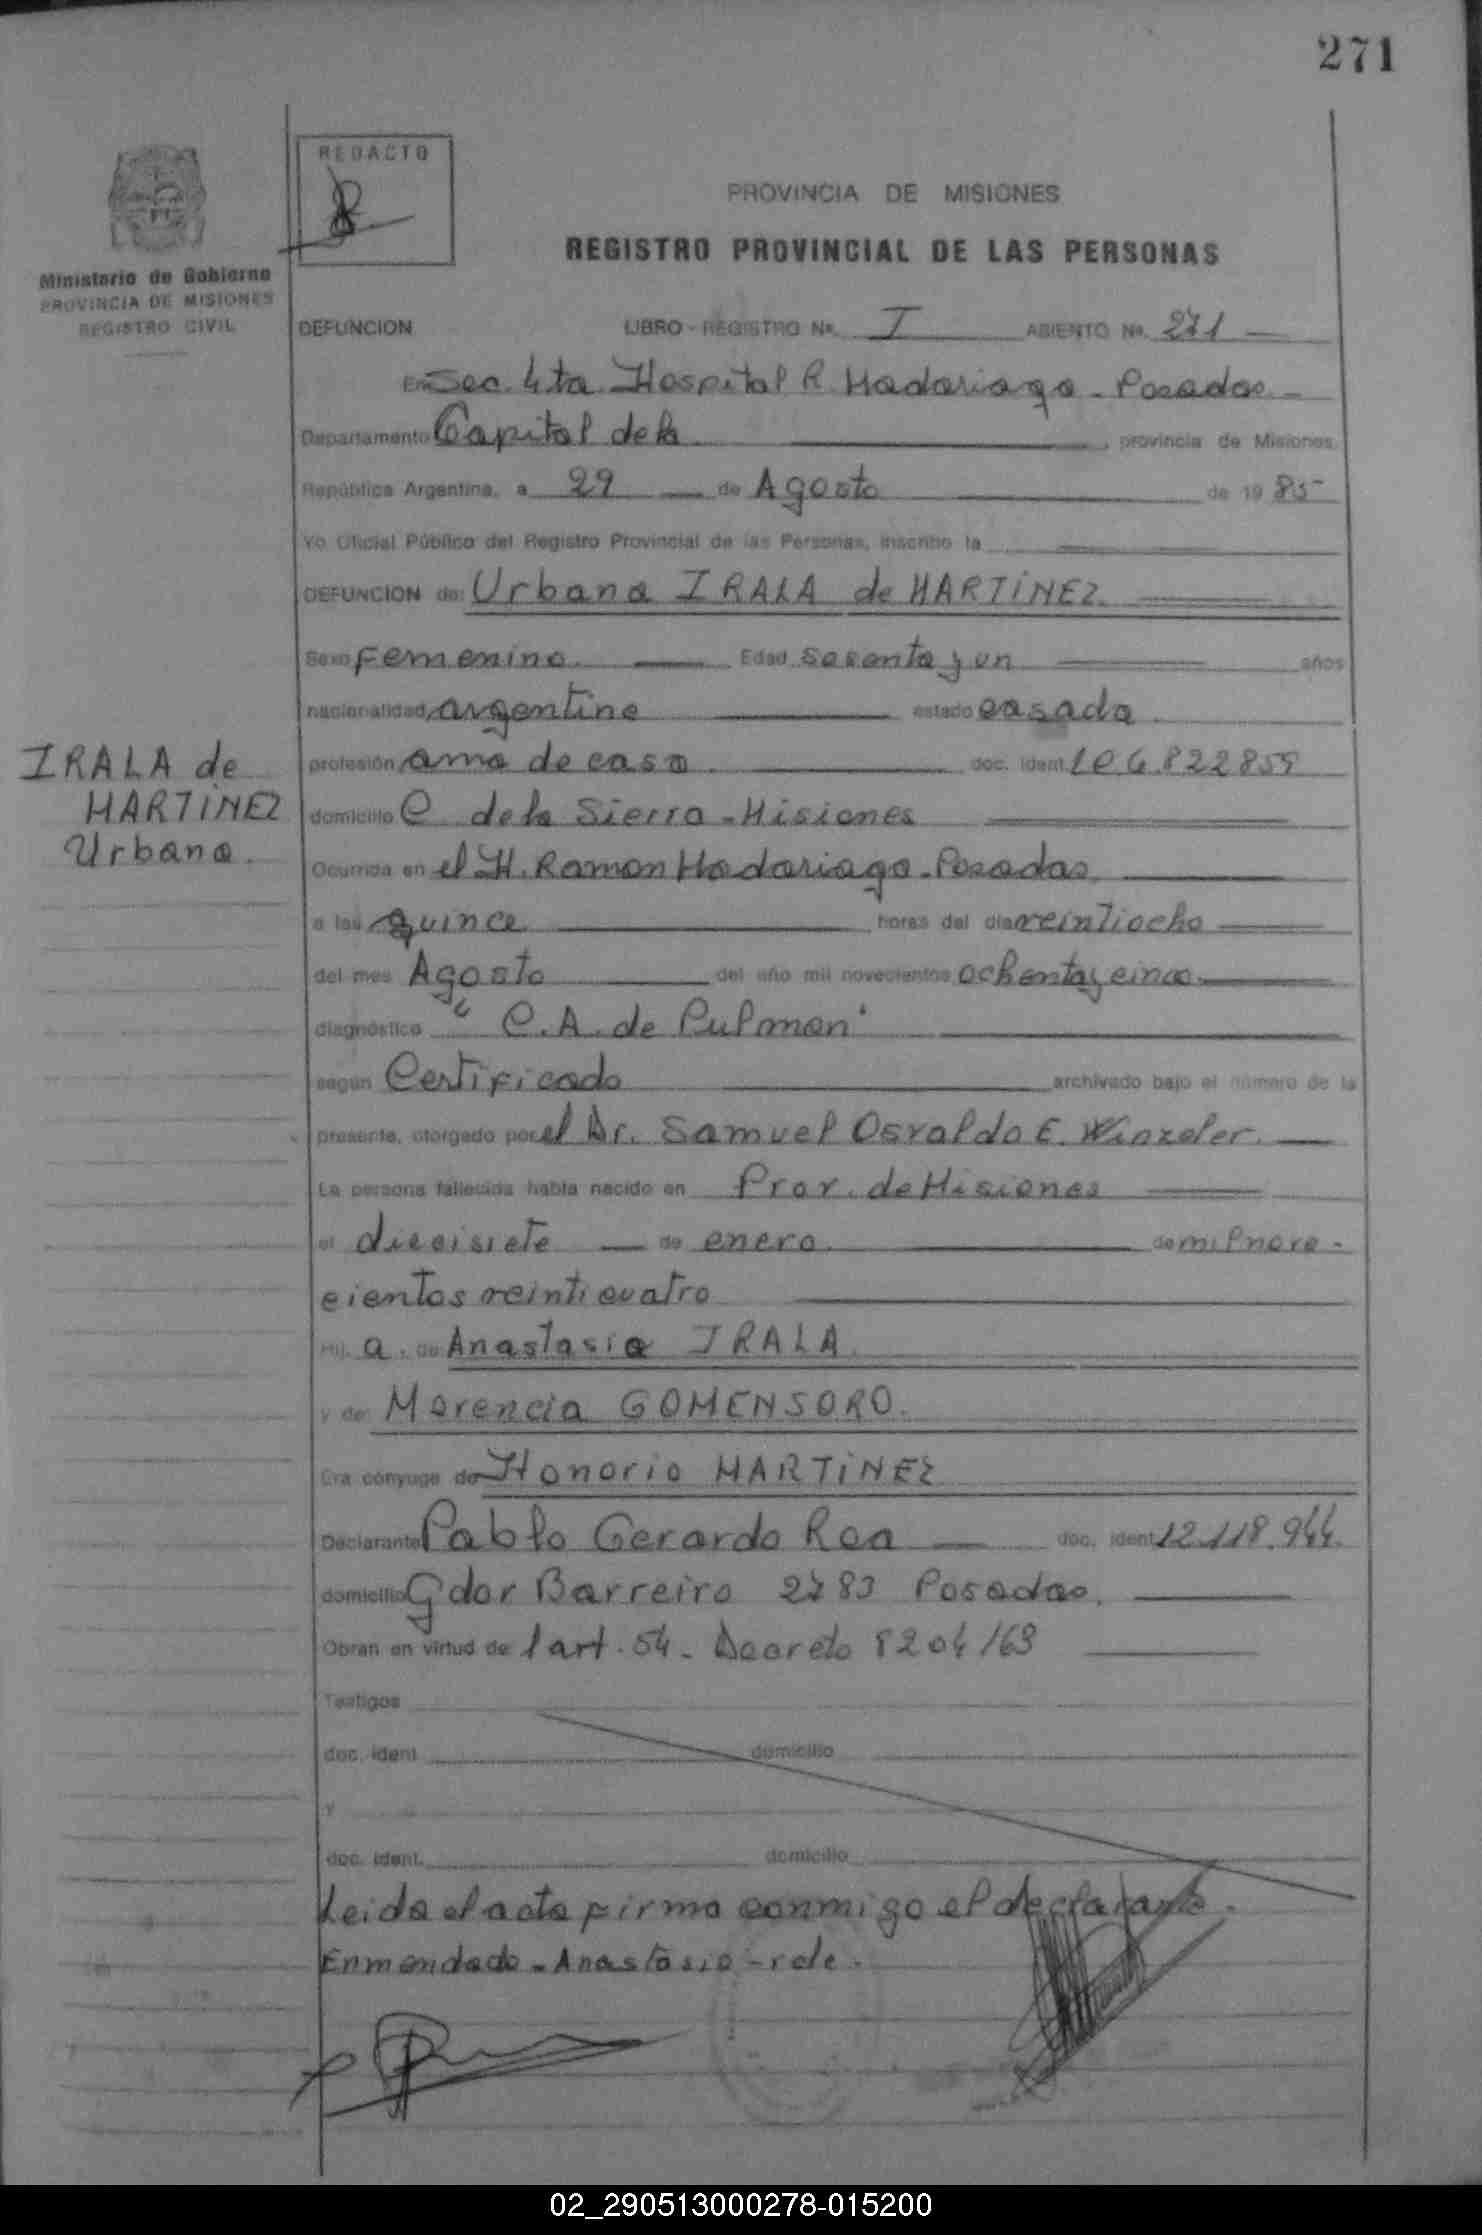 271
REDACTO
PROVINCIA DE MISIONES
REGISTRO PROVINCIAL DE LAS PERSONAS
Ministerio de Gobierno
PROVINCIA DE MISIONES
REGISTRO CIVIL
DEFUNCION LIBRO - REGISTRO Nº. I ASIENTO Nº. 271
En Sec. 4ta. Hospital R. Madariaga - Posadas -
Departamento Capital de la , provincia de Misiones.
República Argentina, a 29 de Agosto de 19 85
Yo Oficial Público del Registro Provincial de las Personas, inscribo la
DEFUNCION de: Urbana IRALA de MARTÍNEZ.
Sexo Femenino. Edad sesenta y un años
nacionalidad argentina estado casada
IRALA de
MARTÍNEZ
Urbana.
profesión ama de casa. doc. ident. LC 6.822855
domicilio C. de la Sierra - Misiones
Ocurrida en el H. Ramon Madariaga - Posadas
a las quince horas del día veintiocho
del mes Agosto del año mil novecientos ochenta y cinco
diagnóstico "C.A. de Pulmon"
según Certificado archivado bajo el número de la
presente, otorgado por el Dr. Samuel Osvaldo E. Winzeler.
La persona fallecida había nacido en Prov. de Misiones
el diecisiete de enero de mil nove-
cientos veinticuatro
Hij a. de Anastasio IRALA.
y de: Morencia GOMENSORO.
Era cónyuge de Honorio MARTÍNEZ
Declarante Pablo Gerardo Roa doc. ident. 12.118.944.
domicilio Gdor Barreiro 2783 Posadas.
Obran en virtud de l art. 54 - Decreto 8204/63
Testigos
doc. ident. domicilio
y
doc. ident. domicilio
Leida el acta firma conmigo el declarante.
Enmendado - Anastasio - vale.
02_290513000278-015200